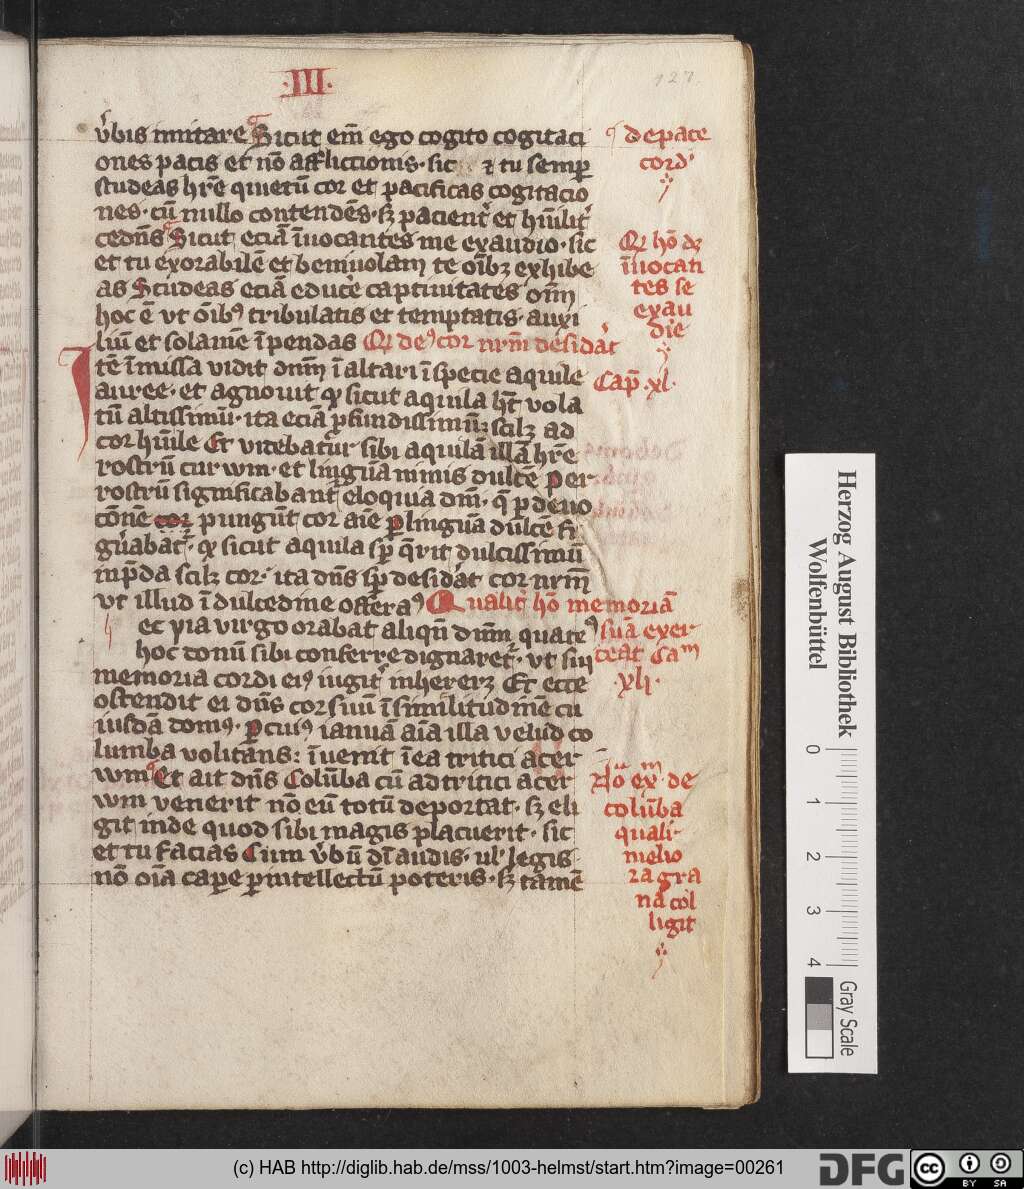 ·III·
127.
v̉bis imitare Sicut em̄ ego cogito cogitaci
ones pacis et nō afflictionis · sic ⁊ tu semꝑ
studeas hr̄e quietū cor et pacificas cogitacio
nes · cū nullo contendēs · sꝫ pacient̉ et hūilit̉
cedn̄s Sicut eciā īuocantes me exaudio · sic
et tu exorabilē et beniuolam te oībꝫ exhibe
as Studeas eciā educ̉e captiuitates om̄
hoc ē vt ōibꝰ tribulatis et temptatis · auxi
liū et solamē īpendas Qͥ deꝰ cor nrm̄ desid̉at
Itē ī missa vidit dnm̄ ī altari ī specie aquile
auree · et agnouit qͥ sicut aquila hꝫ vola
tū altissimū · ita eciā ꝓfundissimū scilꝫ ad
cor hūile Et videbatur sibi aquilā illā hr̄e
rostrū curwm · et linguā nimis dulcē Per
rostrū significabant eloquia dn̄i · q̄ ꝑ deuo
cōnē cor pungūt cor aīe ꝑ linguā dulcē fi
gurabat̉ · qͥ sicut aquila sꝑ q̄rit dulcissimū
in p̄da scilꝫ cor · ita dn̄s sꝑ desid̉at cor nrm̄
vt illud ī dulcedine offeraꝰ Qualit̉ hō memoriā
et pia virgo orabat aliqn̄ dnm̄ quateꝰ
hoc donū sibi conferre dignaret̉ · vt sui
memoria cordi eiꝰ iugit̉ inhereꝫ Et ecce
ostendit ei dn̄s cor suū ī similitudinē cu
iusdā domꝰ · ꝑ cuiꝰ ianuā aīa illa velud co
lumba volitans : īuenit ī ea tritici acer
wm Et ait dn̄s Colūba cū ad tritici acer
wm venerit nō eū totū deportat · sꝫ eli
git inde quod sibi magis placuerit · sic
et tu facias Cum v̉bū dī audis · ul' legis
nō oīa cape ꝑ intellectū poteris · sꝫ tamē
de pace
cord'
Qͥ hō dꝫ
īuocan
tes se
exau
die
Cap̄ · xl ·
suā exer
ceat Caᵐ
xli ·
Nō exᵐ de
colūba
quali
melio
ra gra
na col
ligit
Herzog August Bibliothek
Wolfenbüttel
0 1 2 3 4
Gray Scale
(c) HAB http://diglib.hab.de/mss/1003-helmst/start.htm?image=00261
DFG
cc
BY SA